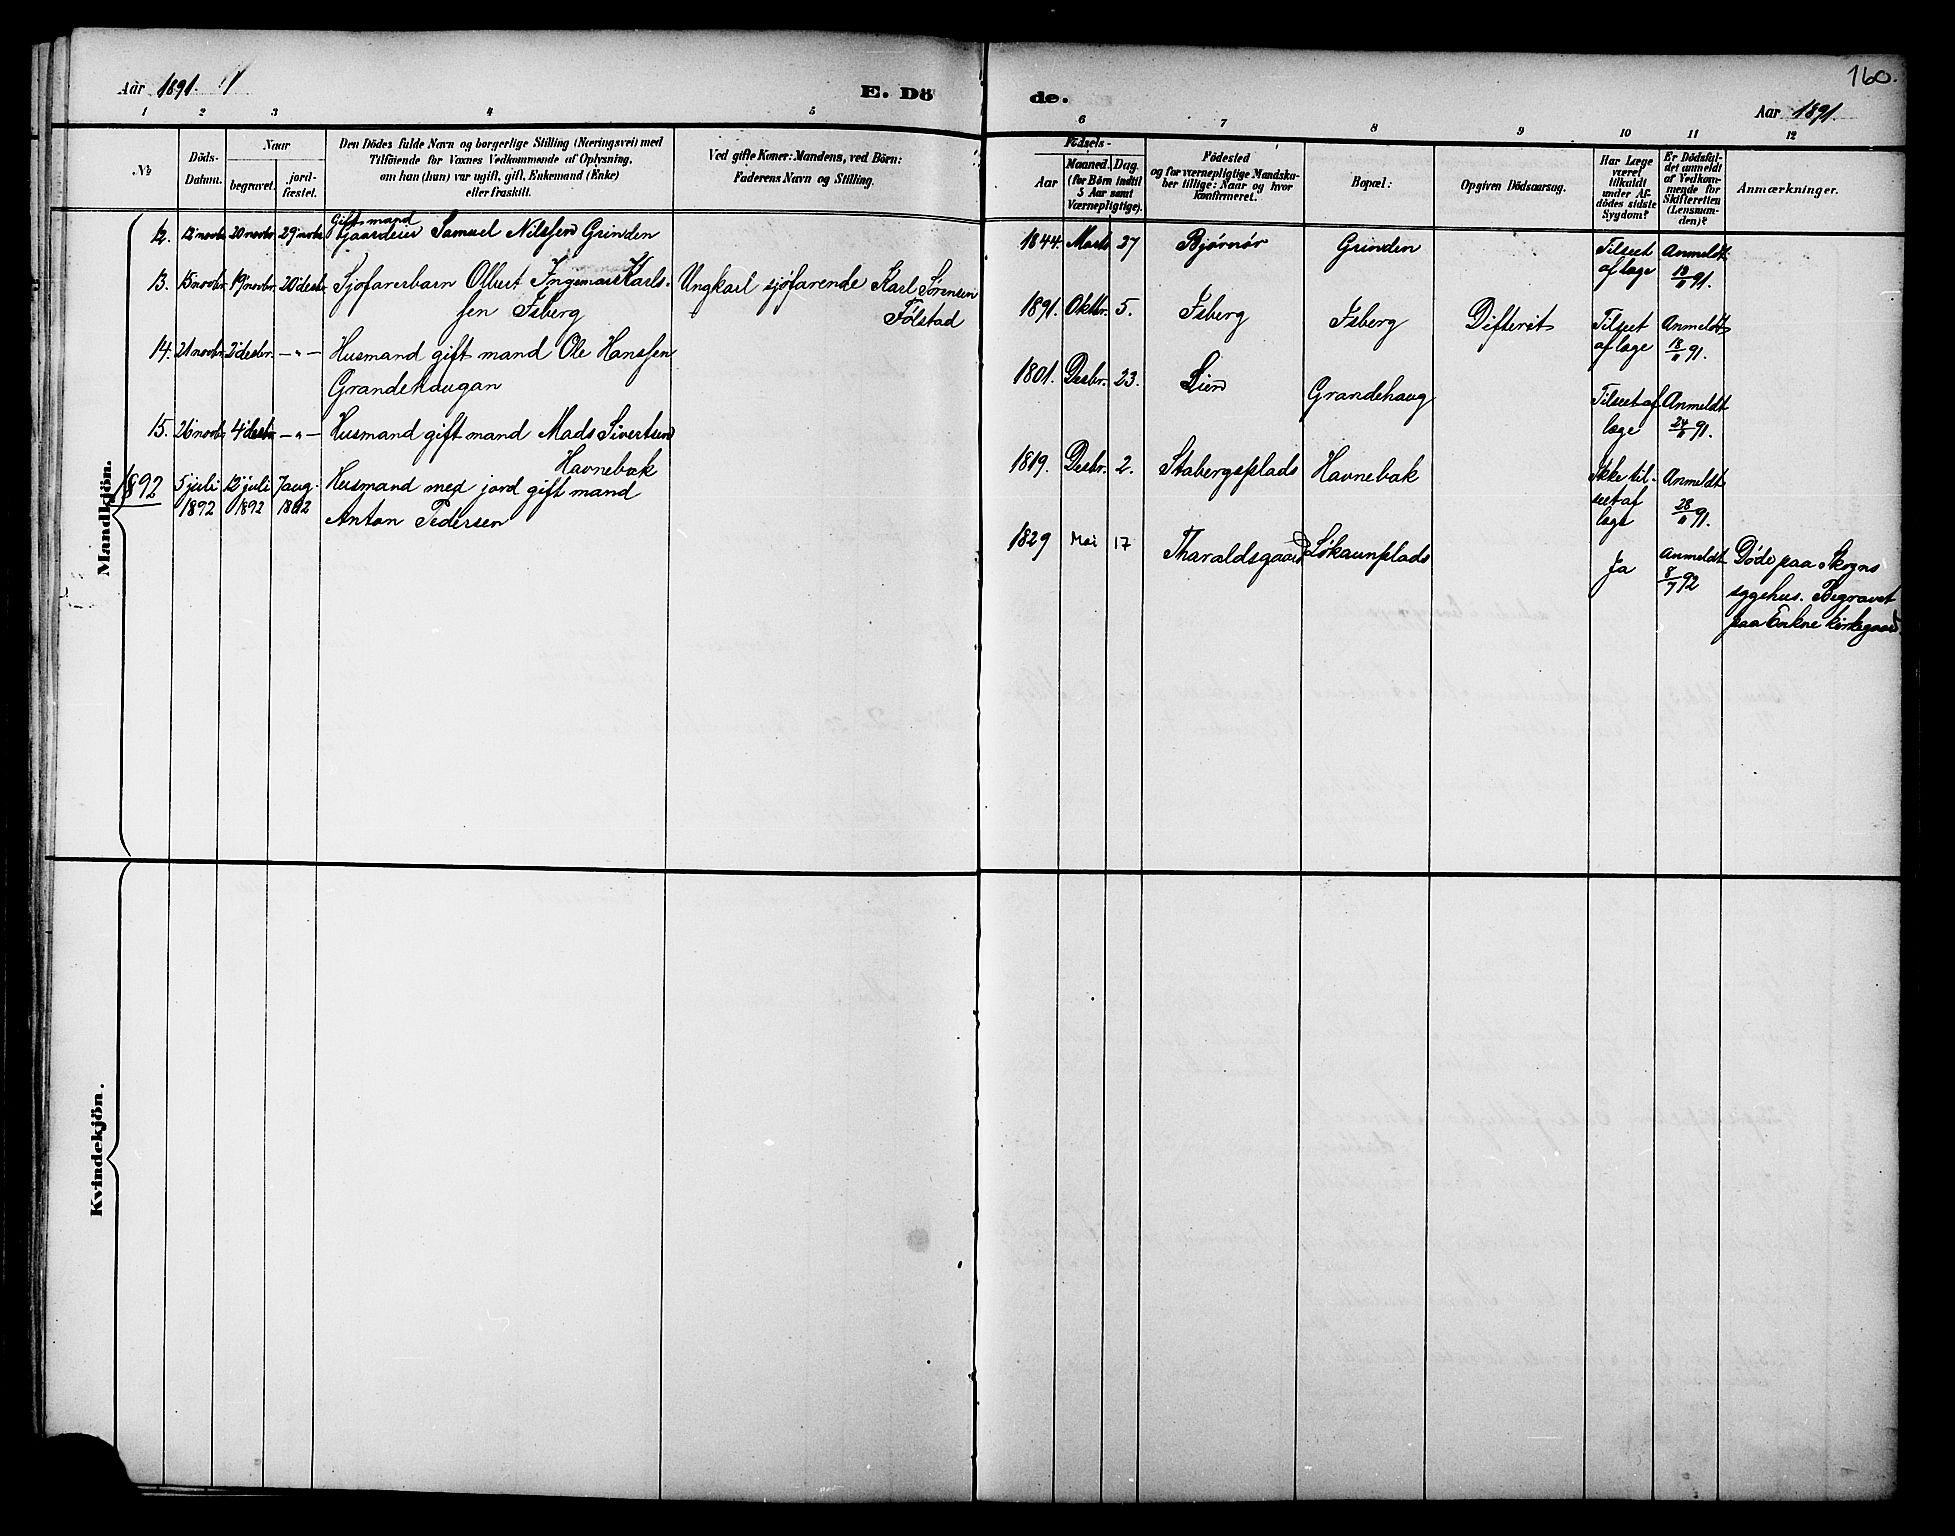 Aar 1891.
E. Dö
1
2
3
4
5
№
Döds-
Datum.
Naar
begravet.
jord-
fæstet.
Den Dödes fulde Navn og borgerlige Stilling (Næringsvei) med
Tilföiende for Voxnes Vedkommende af Oplysning,
om han (hun) var ugift, gift, Enkemand (Enke)
eller fraskilt.
Ved gifte Koner: Mandens, ved Börn:
Faderens Navn og Stilling.
Mandkjön.
Gift mand
12. 12 novbr 20 novbr 29 novbr Gaardeier Samuel Nilssen Grinden
13. 15 novbr. 19 novbr. 20 desbr. Sjøfarerbarn Olbert Ingemar Karls- Ungkarl sjøfarende Karl Sørensen
sen Isberg Følstad
14. 21 novbr. 2 desbr. — " — Husmand gift mand Ole Hanssen
Grandehaugan
15. 26 novbr 4 desbr — " — Husmand gift mand Mads Sivertsen
Havnebak
1892 5 juli 12 juli 7 aug. Husmand med jord gift mand
1892 1892 1892 Anton Pedersen
Kvindekjön.
160.
de.
Aar 1891.
6
7
8
9
10
11
12
Födsels-
Aar
Maaned. Dag.
(for Börn indtil
5 Aar samt
Værnepligtige).
Födested
og for værnepligtige Mandska-
ber tillige: Naar og hvor
konfirmeret.
Bopæl:
Opgiven Dödsaarsag.
Har Læge
været
tilkaldt
under Af-
dödes sidste
Sygdom?
Er Dödsfal-
det anmeldt
af Vedkom-
mende for
Skifteretten
(Lensman-
den)?
Anmærkninger.
1844. Marts 27 Bjørnør Grinden Tilseet Anmeldt
af læge 18/11 91.
1891. Oktbr. 5. Isberg Isberg Difterit Tilseet Anmeldt
af læge 18/11 91.
1801. Desbr. 23. Lien Grandehaug Tilseet af Anmeldt
læge 24/11 91.
1819. Desbr. 2. Stabergsplads Havnebak Ikke til- Anmeldt
seet af 28/11 91.
læge
1829 Mai 17 Tharaldsgaard Løkaunplads Ja Anmeldt 8/7 92 Døde paa Skogns
sygehus. Begravet
paa Enkne kirkegaard